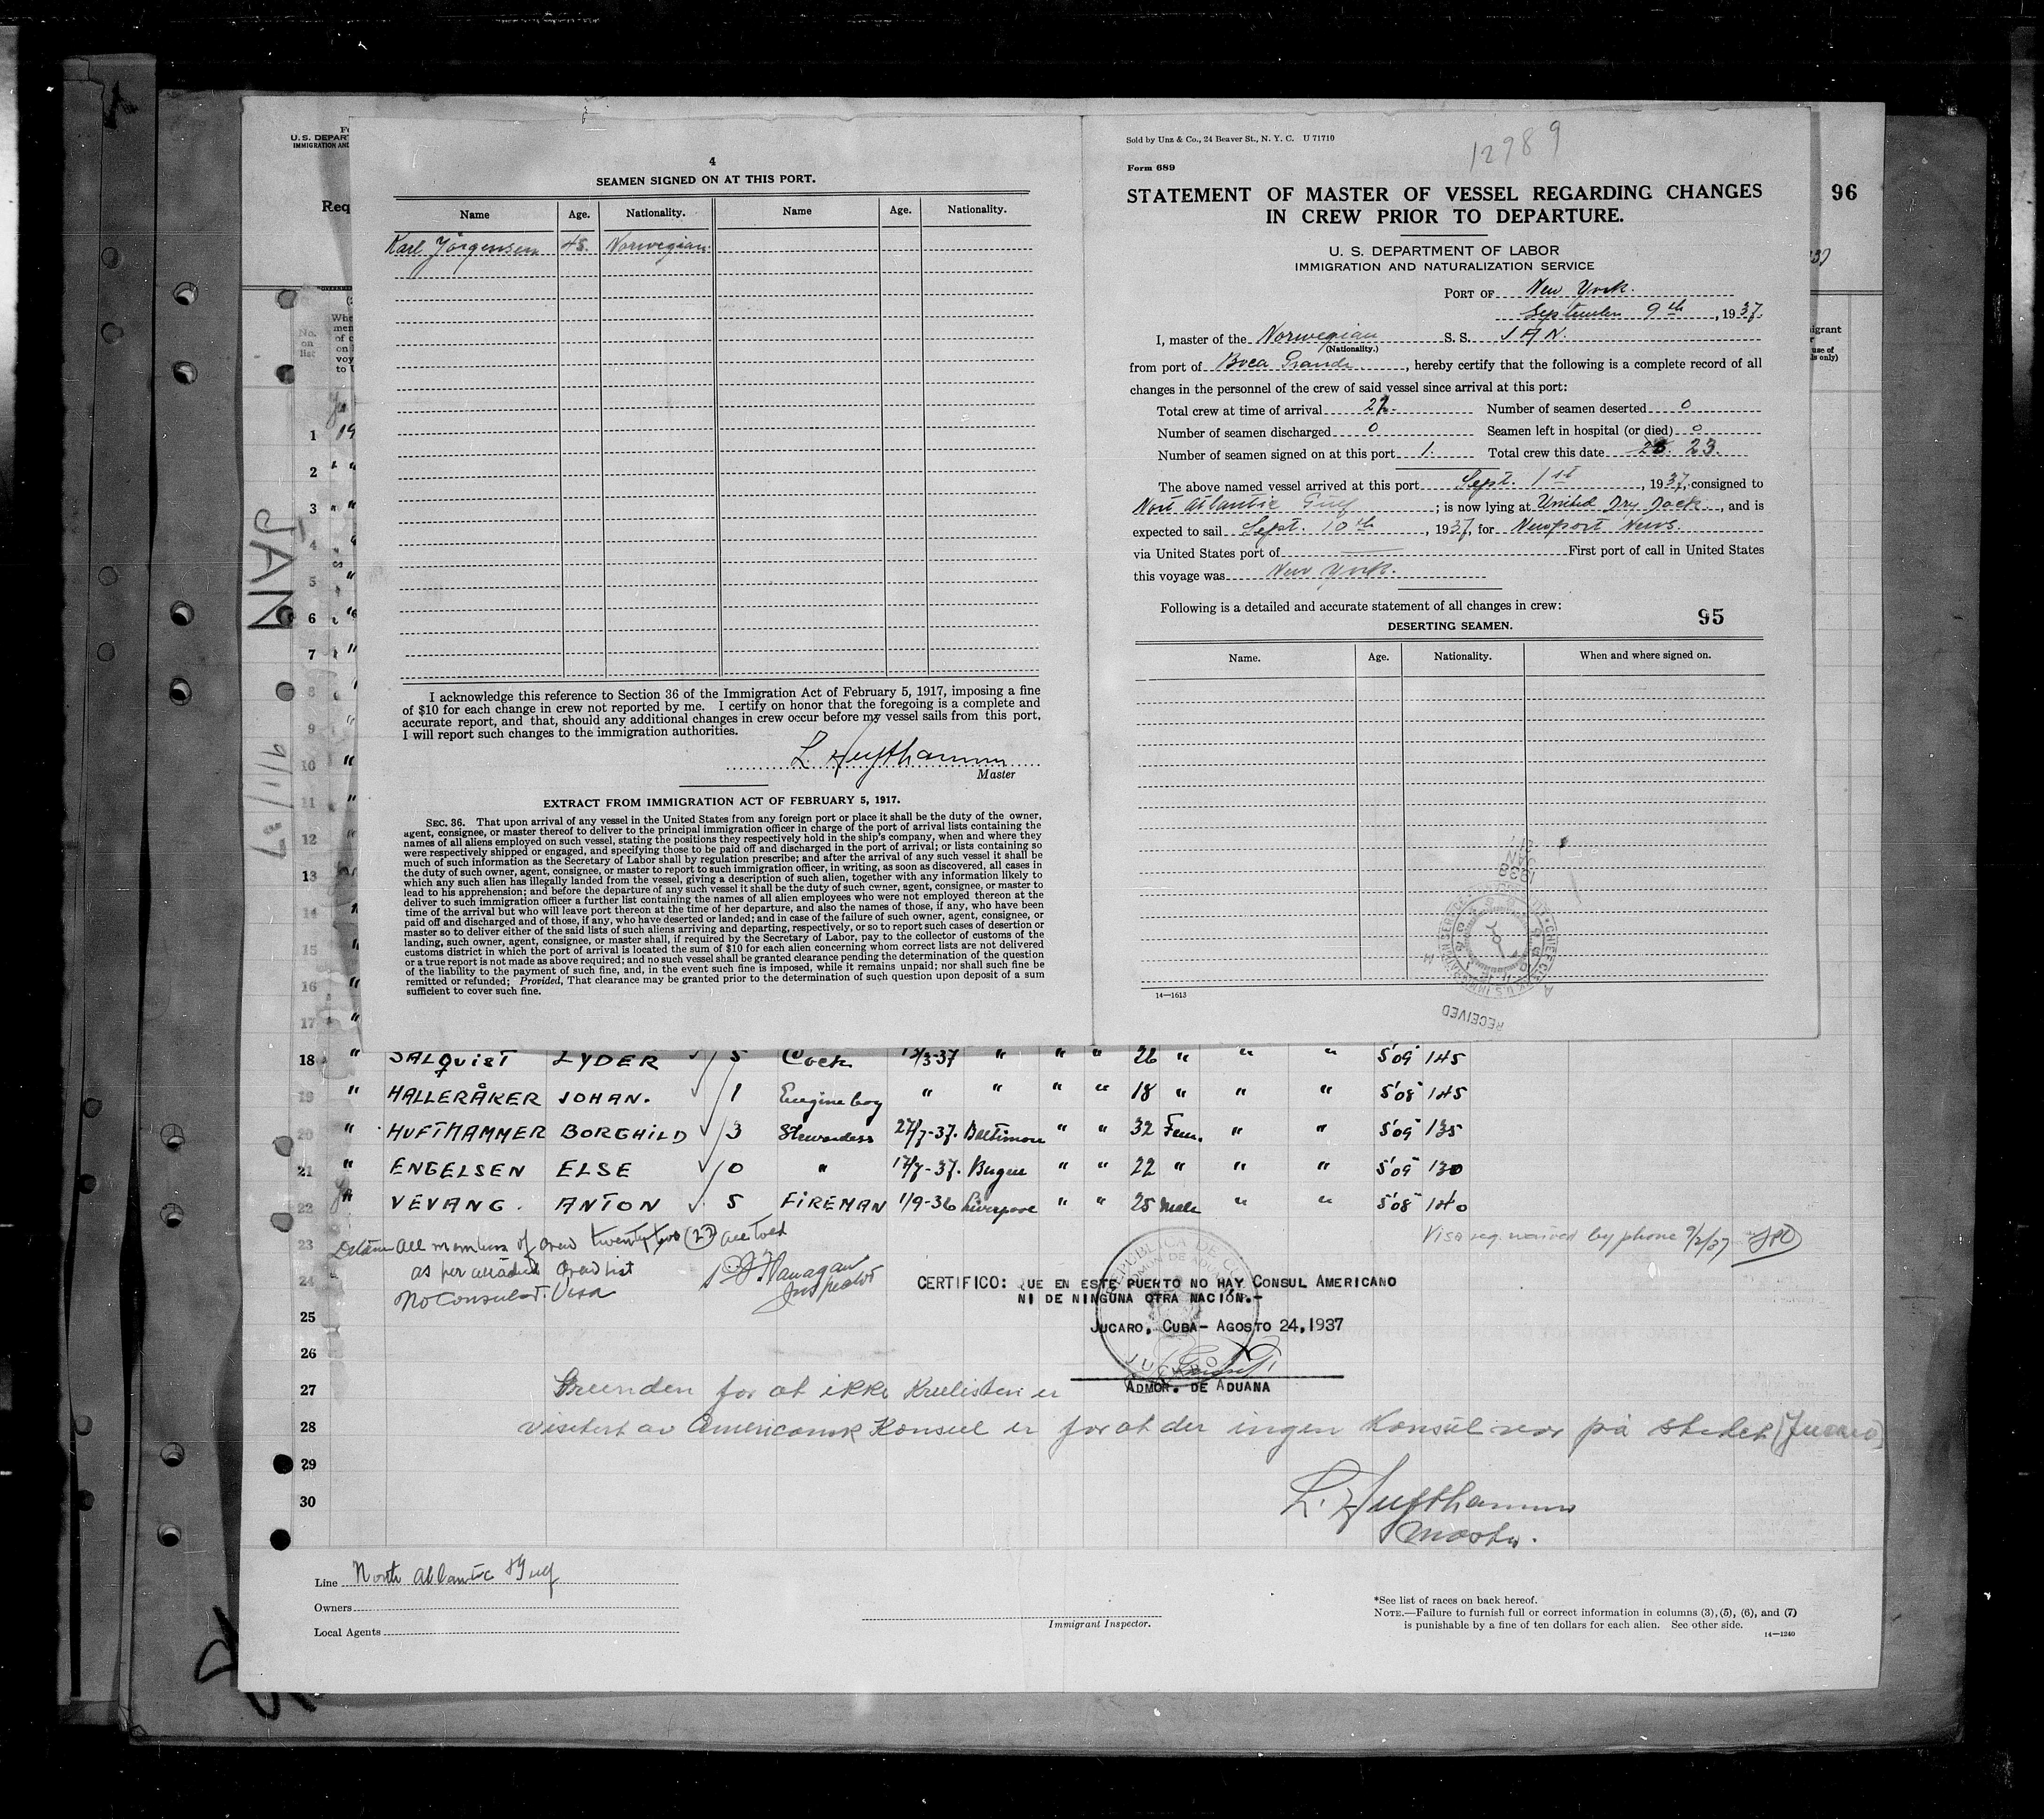 4
SEAMEN SIGNED ON AT THIS PORT.
Name Age. Nationality. Name Age. Nationality.
Karl Jørgensen 45. Norwegian.
I acknowledge this reference to Section 36 of the Immigration Act of February 5, 1917, imposing a fine
of $10 for each change in crew not reported by me. I certify on honor that the foregoing is a complete and
accurate report, and that, should any additional changes in crew occur before my vessel sails from this port,
I will report such changes to the immigration authorities.
L. Hufthammer
Master
EXTRACT FROM IMMIGRATION ACT OF FEBRUARY 5, 1917.
SEC. 36. That upon arrival of any vessel in the United States from any foreign port or place it shall be the duty of the owner,
agent, consignee, or master thereof to deliver to the principal immigration officer in charge of the port of arrival lists containing the
names of all aliens employed on such vessel, stating the positions they respectively hold in the ship's company, when and where they
were respectively shipped or engaged, and specifying those to be paid off and discharged in the port of arrival; or lists containing so
much of such information as the Secretary of Labor shall by regulation prescribe; and after the arrival of any such vessel it shall be
the duty of such owner, agent, consignee, or master to report to such immigration officer, in writing, as soon as discovered, all cases in
which any such alien has illegally landed from the vessel, giving a description of such alien, together with any information likely to
lead to his apprehension; and before the departure of any such vessel it shall be the duty of such owner, agent, consignee, or master to
deliver to such immigration officer a further list containing the names of all alien employees who were not employed thereon at the
time of the arrival but who will leave port thereon at the time of her departure, and also the names of those, if any, who have been
paid off and discharged and of those, if any, who have deserted or landed; and in case of the failure of such owner, agent, consignee, or
master so to deliver either of the said lists of such aliens arriving and departing, respectively, or so to report such cases of desertion or
landing, such owner, agent, consignee, or master shall, if required by the Secretary of Labor, pay to the collector of customs of the
customs district in which the port of arrival is located the sum of $10 for each alien concerning whom correct lists are not delivered
or a true report is not made as above required; and no such vessel shall be granted clearance pending the determination of the question
of the liability to the payment of such fine, and, in the event such fine is imposed, while it remains unpaid; nor shall such fine be
remitted or refunded; Provided, That clearance may be granted prior to the determination of such question upon deposit of a sum
sufficient to cover such fine.
Sold by Unz & Co., 24 Beaver St., N. Y. C. U 71710
12989
Form 689
STATEMENT OF MASTER OF VESSEL REGARDING CHANGES
IN CREW PRIOR TO DEPARTURE.
96
U. S. DEPARTMENT OF LABOR
IMMIGRATION AND NATURALIZATION SERVICE
PORT OF New York.
September 9th, 1937.
I, master of the Norwegian S. S. JAN.
(Nationality.)
from port of Boca Grande, hereby certify that the following is a complete record of all
changes in the personnel of the crew of said vessel since arrival at this port:
Total crew at time of arrival 22. Number of seamen deserted 0
Number of seamen discharged 0 Seamen left in hospital (or died) 0
Number of seamen signed on at this port 1. Total crew this date 23.
The above named vessel arrived at this port Sept. 1st, 1937, consigned to
Nort Atlantic Gulf; is now lying at United Dry Dock, and is
expected to sail Sept. 10th, 1937, for Newport News.
via United States port of First port of call in United States
this voyage was New York.
Following is a detailed and accurate statement of all changes in crew:
95
DESERTING SEAMEN.
Name. Age. Nationality. When and where signed on.
1938
JAN
RECEIVED
14—1613
JAN
U. S. DEPAR
IMMIGRATION AND
Req
No. on list
1
2
3
4
5
6
7
8
9
10
11
12
13
14
15
16
17
18 " SALQUIST LYDER ✓ 5 Cock 12/3-37 " " " 26 " " " 5'09" 145
19 " HALLERÅKER JOHAN. ✓ 1 Engine boy " " " " 18 " " " 5'08" 145
20 " HUFTHAMMER BORGHILD ✓ 3 Stewardess 27/7-37. Baltimore " " 32 Fem. " " 5'09" 135
21 " ENGELSEN ELSE ✓ 0 " 17/7-37. Bergen " " 22 " " " 5'05" 130
22 " VEVANG. ANTON ✓ 5 FIREMAN 1/9-36 Liverpool " " 25 Male " " 5'08" 140
23 Detain all members of crew twenty two (22) all told
as per attached Crew list
24 No Consul. Visa
Flanagan
Inspector
Visa req. waived by phone 9/2/37
CERTIFICO: QUE EN ESTE PUERTO NO HAY CONSUL AMERICANO
NI DE NINGUNA OTRA NACIÓN.-
25 JUCARO, CUBA- AGOSTO 24,1937
26
ADMOR. DE ADUANA
27 Grunden for at ikke Krulisten er
28 visitert av Americansk Konsul er for at der ingen Konsul var på stedet (Jucaro)
29
30
L. Hufthammer
Master.
Line North Atlantic & Gulf
Owners
Local Agents
Immigrant Inspector.
*See list of races on back hereof.
NOTE.—Failure to furnish full or correct information in columns (3), (5), (6), and (7)
is punishable by a fine of ten dollars for each alien. See other side.
14—1240